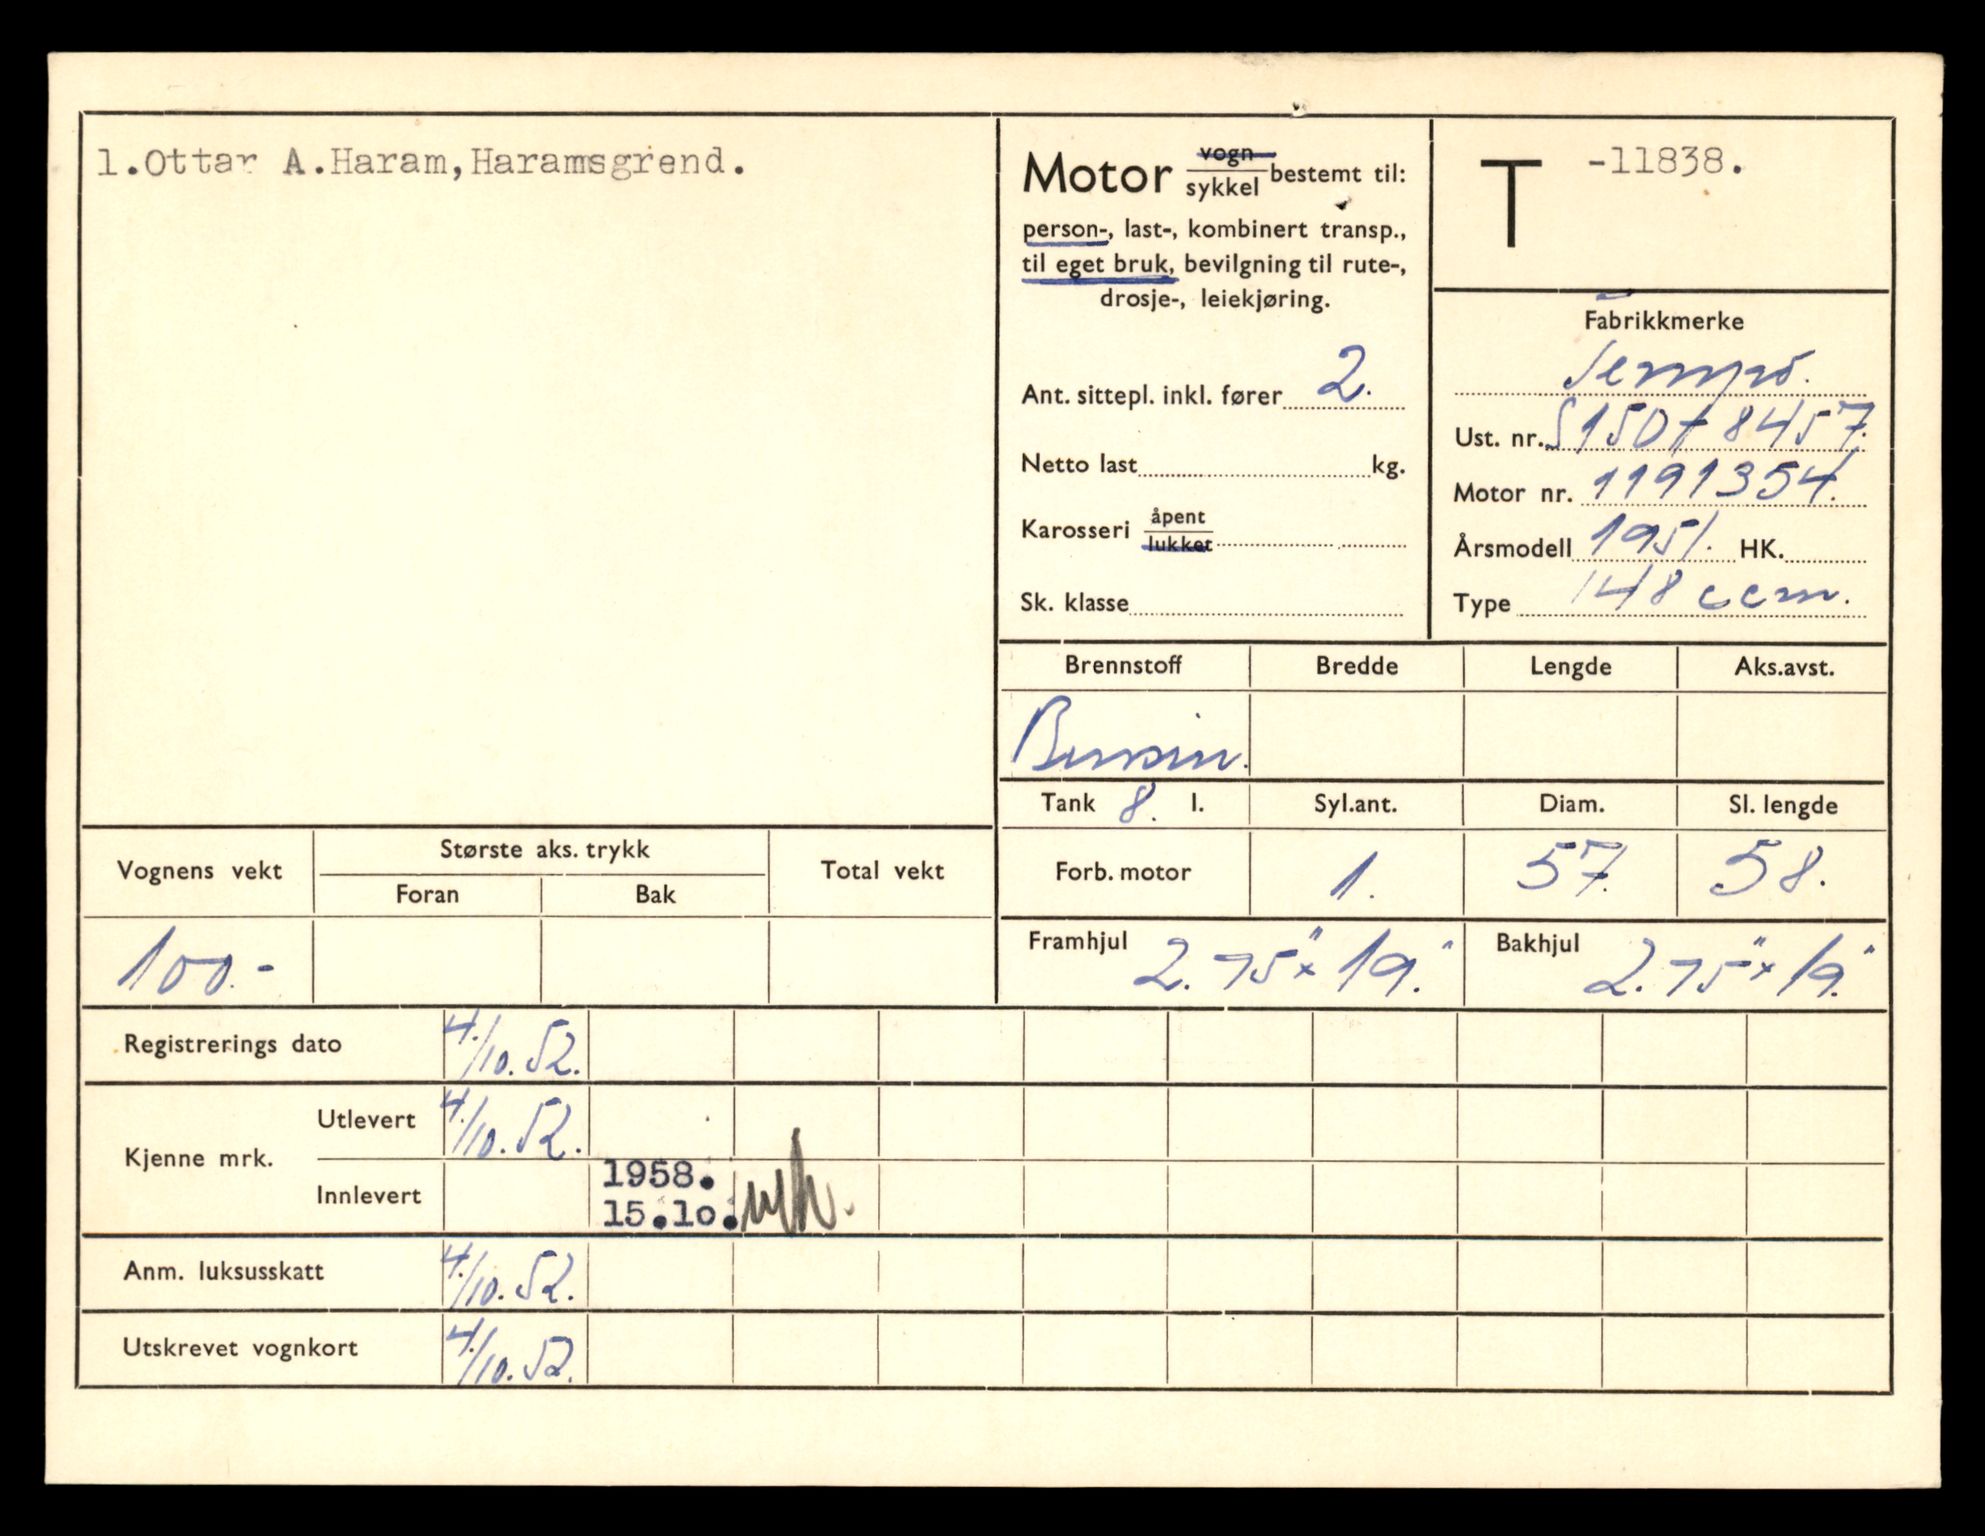 1.Ottar A.Haram,Haramsgrend.
Motor vogn sykkel bestemt til:
person-, last-, kombinert transp.,
til eget bruk, bevilgning til rute-,
drosje-, leiekjøring.
Ant. sittepl. inkl. fører 2.
Netto last kg.
Karosseri åpent lukket
Sk. klasse
T -11838.
Fabrikkmerke
Tempo.
Ust. nr. S150+8457.
Motor nr. 1191354.
Årsmodell 1951. HK.
Type 148 ccm.
Brennstoff Bredde Lengde Aks.avst.
Bensin.
Tank 8. l. Syl.ant. Diam. Sl. lengde
Forb. motor 1. 57. 58.
Framhjul 2.75"x19." Bakhjul 2.75"x19."
Vognens vekt Største aks. trykk Total vekt
Foran Bak
100.-
Registrerings dato 4./10.52.
Kjenne mrk. Utlevert 4./10.52.
Innlevert 1958.
15.10.
Anm. luksusskatt 4./10.52.
Utskrevet vognkort 4./10.52.